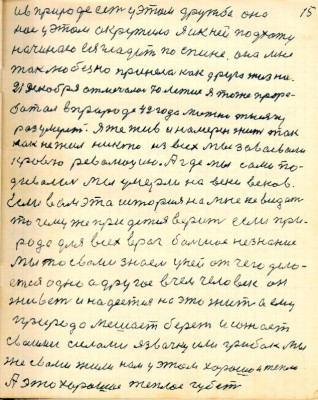 15
и в природе есть у этом дружба оно
мое у этом скрутило я к ней подхожу
начинаю ея гладеть по спине, она мне
так любезно приняла как друга жизни.
21 декабря отмечали 70 летия я тоже прора-
ботал в природе 42 года можно тысячу
разумет. я теж жив и намерен жит так
как не жил никто из всех мы завоевали
кровью революцию. А где мы сами по-
девались мы умерли на веки веков.
Если вам эта история на мне не видат
то чему же придется верит если при-
рода для всех враг болшое незнание
мы то свами знаем у ней от чего дело-
ется одно а другое в чем человек он
живет и надеется на это жит а ему
природа мешает берет и сажает
своими силами язвачку или грибок мы
же свами жили нам у этом хорошо и тепло
А это хорошое теплое губет